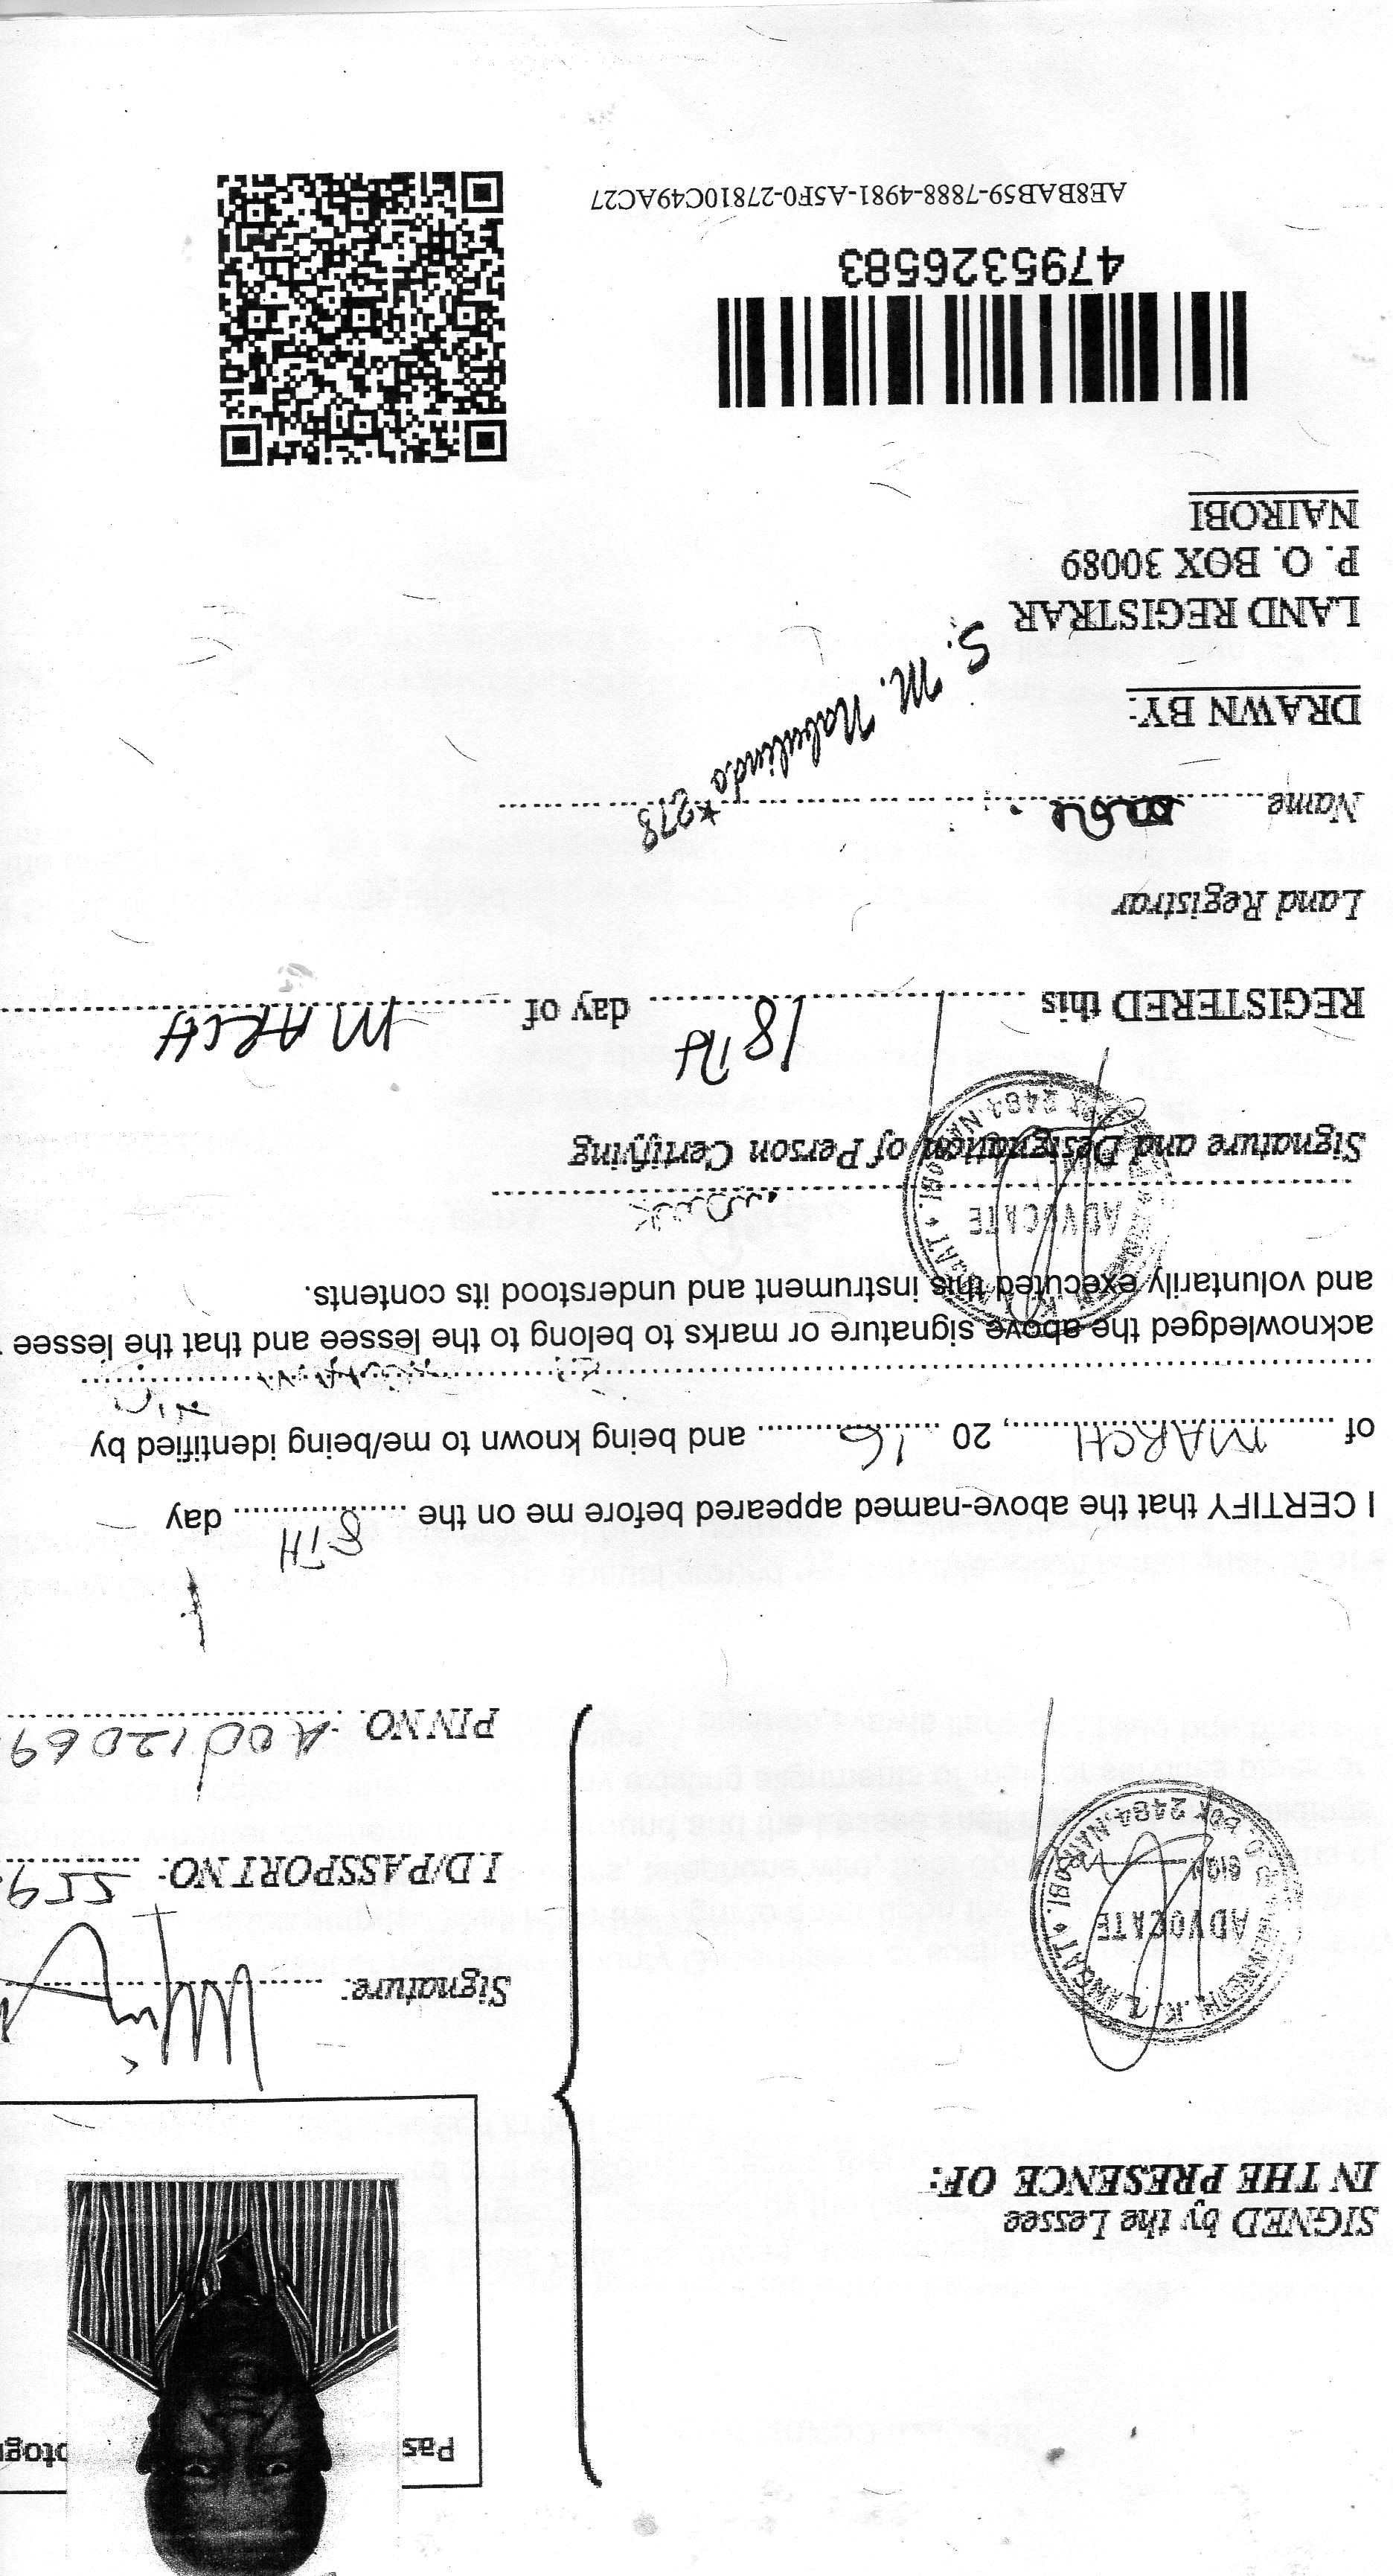 Pas otogr
SIGNED by the Lessee
IN THE PRESENCE OF:
K. LANGAT
ADVOCATE
SIGN
BOX 2484, NAIROBI.
Signature:
I.D/PASSPORT NO: 559
PIN NO. A0012069
I CERTIFY that the above-named appeared before me on the 8TH day
of MARCH, 20 16 and being known to me/being identified by
acknowledged the above signature or marks to belong to the lessee and that the lessee
and voluntarily executed this instrument and understood its contents.
ADVOCATE
2484, NAIROBI.
Signature and Designation of Person Certifying
REGISTERED this 18TH day of MARCH
Land Registrar
Name
S. M. Nabulindo*278
DRAWN BY:
LAND REGISTRAR
P. O. BOX 30089
NAIROBI
4795326583
AE8BAB59-7888-4981-A5F0-27810C49AC27